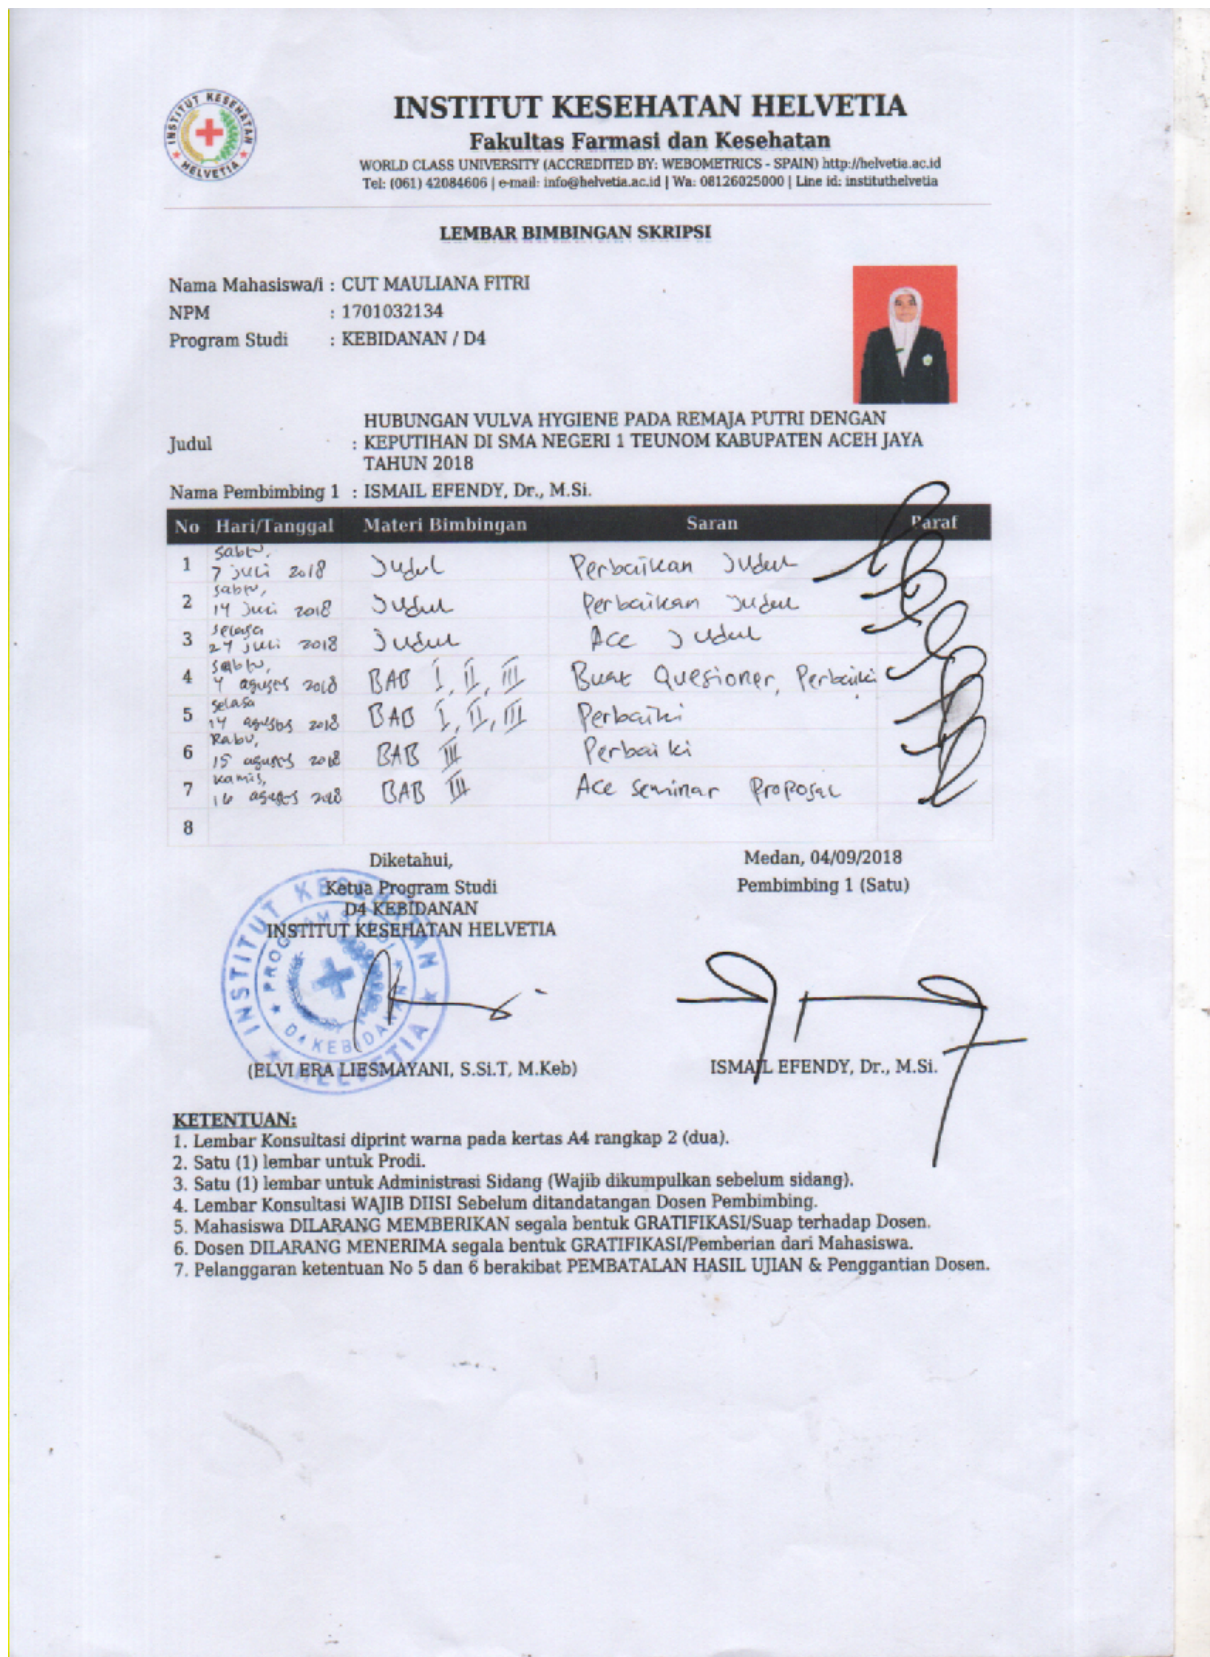 INSTITUT KESEHATAN HELVETIA
INSTITUT KESEHATAN
HELVETIA
Fakultas Farmasi dan Kesehatan
WORLD CLASS UNIVERSITY (ACCREDITED BY: WEBOMETRICS - SPAIN) http://helvetia.ac.id
Tel: (061) 42084606 | e-mail: info@helvetia.ac.id | Wa: 08126025000 | Line id: instituthelvetia
LEMBAR BIMBINGAN SKRIPSI
Nama Mahasiswa/i : CUT MAULIANA FITRI
NPM : 1701032134
Program Studi : KEBIDANAN / D4
HUBUNGAN VULVA HYGIENE PADA REMAJA PUTRI DENGAN
Judul : KEPUTIHAN DI SMA NEGERI 1 TEUNOM KABUPATEN ACEH JAYA
TAHUN 2018
Nama Pembimbing 1 : ISMAIL EFENDY, Dr., M.Si.
No Hari/Tanggal Materi Bimbingan Saran Paraf
Sabtu,
1 7 juli 2018 Judul Perbaikan Judul
Sabtu,
2 14 juli 2018 Judul Perbaikan Judul
Selasa
3 24 juli 2018 Judul Acc Judul
Sabtu,
4 4 agustus 2018 BAB I, II, III Buat Quesioner, Perbaiki
Selasa
5 14 agustus 2018 BAB I, II, III Perbaiki
Rabu,
6 15 agustus 2018 BAB III Perbaiki
Kamis,
7 16 agustus 2018 BAB III Acc seminar Proposal
8
Diketahui, Medan, 04/09/2018
Ketua Program Studi Pembimbing 1 (Satu)
D4 KEBIDANAN
INSTITUT KESEHATAN HELVETIA
INSTITUT KESEHATAN
HELVETIA
PROGRAM STUDI
D4 KEBIDANAN
(ELVI ERA LIESMAYANI, S.Si.T, M.Keb) ISMAIL EFENDY, Dr., M.Si.
KETENTUAN:
1. Lembar Konsultasi diprint warna pada kertas A4 rangkap 2 (dua).
2. Satu (1) lembar untuk Prodi.
3. Satu (1) lembar untuk Administrasi Sidang (Wajib dikumpulkan sebelum sidang).
4. Lembar Konsultasi WAJIB DIISI Sebelum ditandatangan Dosen Pembimbing.
5. Mahasiswa DILARANG MEMBERIKAN segala bentuk GRATIFIKASI/Suap terhadap Dosen.
6. Dosen DILARANG MENERIMA segala bentuk GRATIFIKASI/Pemberian dari Mahasiswa.
7. Pelanggaran ketentuan No 5 dan 6 berakibat PEMBATALAN HASIL UJIAN & Penggantian Dosen.